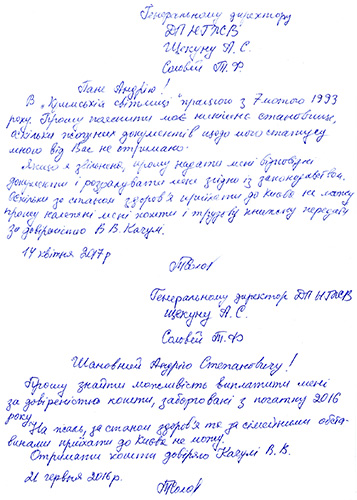 Генеральному директору
ДП НГЖВ
Щекуну А. С.
Соловій Т. Ф.
Пане Андрію!
В „Кримській світлиці" працюю з 7 лютого 1993
року. Прошу пояснити моє нинішнє становище,
оскільки жодних документів щодо мого статусу
мною від Вас не отримано.
Якщо я звільнена, прошу надати мені відповідні
документи і розрахувати мене згідно із законодавством.
Оскільки за станом здоров'я приїхати до Києва не можу
прошу належні мені кошти і трудову книжку передати
за довіреністю В. В. Качулі.
14 квітня 2017 р
Генеральному директор ДП НГЖВ
Щекуну А. С.
Соловій Т. Ф
Шановний Андрію Степановичу!
Прошу знайти можливість виплатити мені
за довіреністю кошти, заборговані з початку 2016
року.
На жаль, за станом здоров'я та за сімейними обста-
винами приїхати до Києва не можу.
Отримати кошти довіряю Качулі В. В.
21 червня 2016 р.